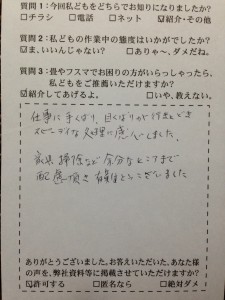 質問1:今回私どもをどちらでお知りになりましたか?
□チラシ □電話 □ネット ☑紹介・その他
質問2:私どもの作業中の態度はいかがでしたか?
☑ま、いいんじゃない? □ありゃ~、ダメだね。
質問3:畳やフスマでお困りの方がいらっしゃったら、
私どもをご推薦いただけますか?
☑紹介してあげるよ。 □いや、教えない。
仕事に手くばり、目くばりの
スピーディな処理に感心しました。
掃除など余分なところまで
配慮頂き有難とうございました
ありがとうございました。お答えいただいた、あなた様
の声を、弊社資料等に掲載させていただけますか?
☑許可する □匿名なら □絶対ダメ